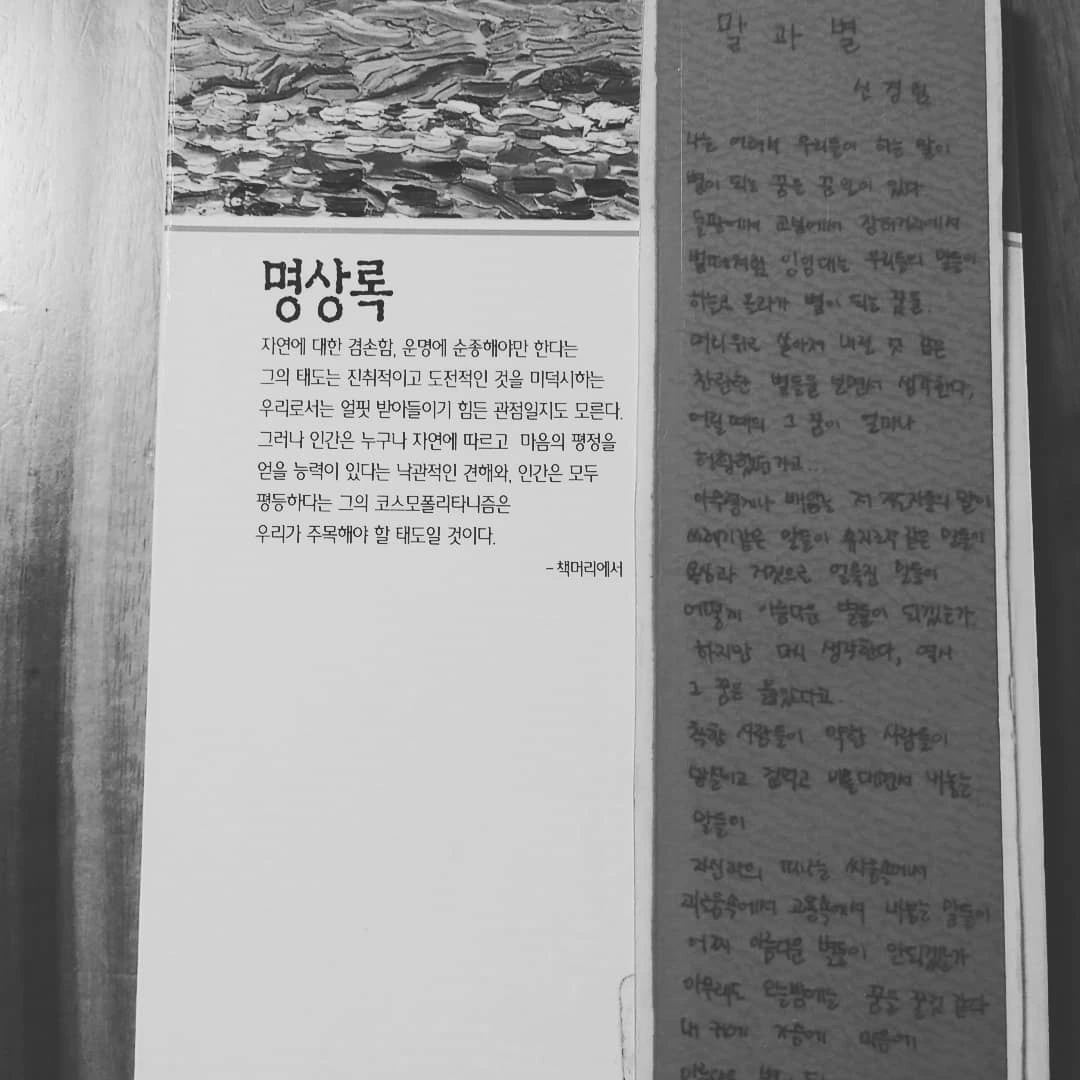 명상록
자연에 대한 겸손함, 운명에 순종해야만 한다는
그의 태도는 진취적이고 도전적인 것을 미덕시하는
우리로서는 얼핏 받아들이기 힘든 관점일지도 모른다.
그러나 인간은 누구나 자연에 따르고 마음의 평정을
얻을 능력이 있다는 낙관적인 견해와, 인간은 모두
평등하다는 그의 코스모폴리타니즘은
우리가 주목해야 할 태도일 것이다.
– 책머리에서
말 과 별
신경림
나는 어려서 우리들이 하는 말이
별이 되는 꿈을 꾼 일이 있다
들판에서 교실에서 장터거리에서
벌떼처럼 잉잉대는 우리들의 말들이
하늘로 올라가 별이 되는 꿈을.
머리위로 쏟아져 내릴 것 같은
찬란한 별들을 보면서 생각한다,
어릴 때의 그 꿈이 얼마나
허황했던가고...
아무렇게나 배앝는 저 지도자들의 말이
쓰레기같은 말들이 휴지조각 같은 말들이
욕심과 거짓으로 얼룩진 말들이
어떻게 아름다운 별들이 되겠는가.
하지만 다시 생각한다, 역시
그 꿈은 옳았다고.
착한 사람들이 약한 사람들이
망설이고 겁먹고 비틀대면서 내놓는
말들이
자신과의 피나는 싸움속에서
괴로움속에서 고통속에서 내놓는 말들이
어찌 아름다운 별들이 안되겠는가
아무래도 오늘밤에는 꿈을 꿀것 같다
내 귀에 가슴에 마음에